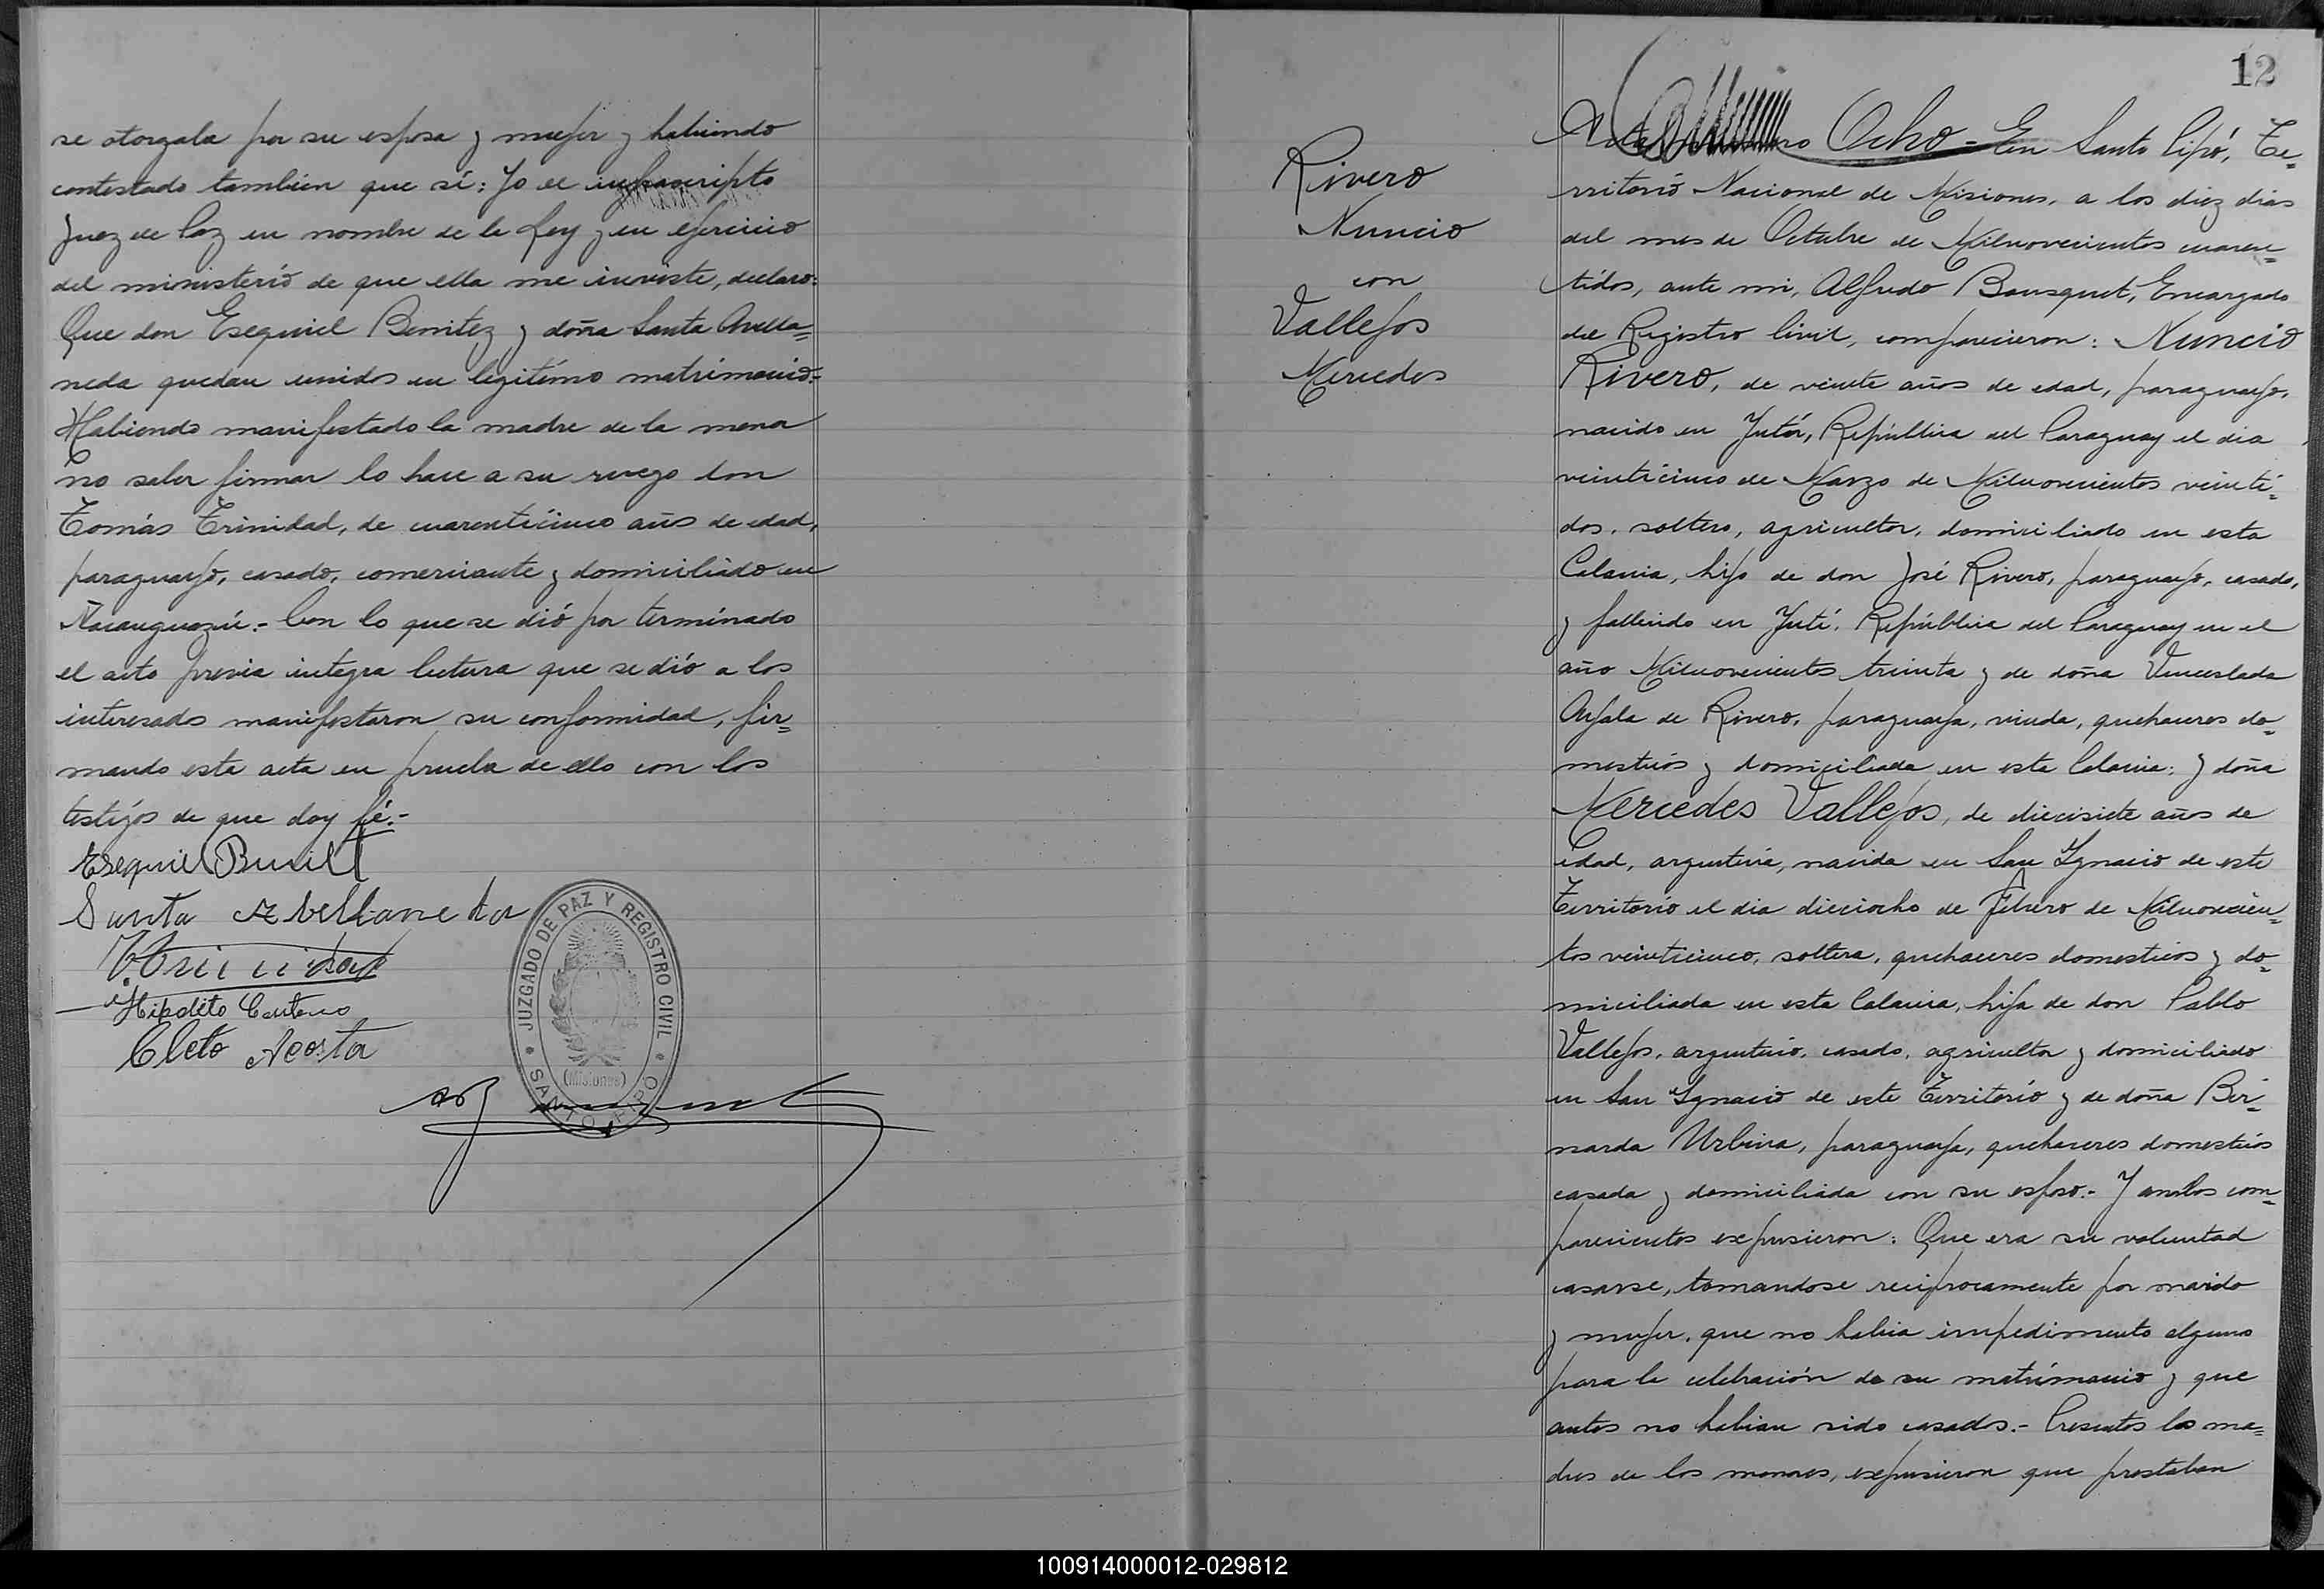 se otorgala por su esposa y mujer y habiendo
contestado tambien que sí: Yo el infrascripto
Juez de Paz en nombre de la Ley y en ejercicio
del ministerió de que ella me inviste, declaro:
Que don Esequiel Benitez y doña Santa Avella=
neda quedan unidos en legitímo matrimonio.-
Habiendo manifestado la madre de la menor
no saber firmar lo hace a su ruego don
Tomás Trinidad, de cuarenticinco años de edad,
paraguayo, casado, comerciante y domiciliado en
Ñacanguazú.- Con lo que se dió por terminado
el acto previa integra lectura que se dió a los
interesados manifestaron su conformidad, fir=
mando esta acta en prueba de ello con los
testigos de que doy fé.-
Esequiel Benit
Santa Avellaneda
Hipolito Centeno
Cleto Acosta
JUZGADO DE PAZ Y REGISTRO CIVIL
(Misiones)
SANTO PIPÓ
12
Rivero
Nuncio
con
Vallejos
Mercedes
Acta Número Ocho = En Santo Pipó, Te=
rritorió Nacional de Misiones, a los diez dias
del mes de Octubre de Milnovecientos cuaren=
tidos, ante mi, Alfredo Bousquet, Encargado
del Registro Civil, comparecieron: Nuncio
Rivero, de veinte años de edad, paraguayo,
nacido en Jutí, República del Paraguay el dia
veinticinco de Marzo de Milnovecientos veinti=
dos, soltero, agricultor, domiciliado en esta
Colonia, hijo de don José Rivero, paraguayo, casado,
y fallecido en Jutí, República del Paraguay en el
año Milnovecientos treinta y de doña Venceslada
Ayala de Rivero, paraguaya, viuda, quehaceres do=
mesticos y domiciliada en esta Colonia; y doña
Mercedes Vallejos, de diecisiete años de
edad, argentina, nacida en San Ignacio de este
Territorio el dia dieciocho de Febrero de Milnovecien=
tos veinticinco, soltera, quehaceres domesticos y do=
miciliada en esta Colonia, hija de don Pablo
Vallejos, argentino, casado, agricultor y domiciliado
en San Ignacio de este Territorio y de doña Ber=
narda Urbina, paraguaya, quehaceres domesticos
casada y domiciliada con su esposo.- Y ambos com=
parecientes expusieron: Que era su voluntad
casarse, tomandose reciprocamente por marido
y mujer, que no habia impedimento alguno
para la celebración de su matrimonio y que
antes no habian sido casados.- Presentes las ma=
dres de los menores, expusieron que prestaban
100914000012-029812